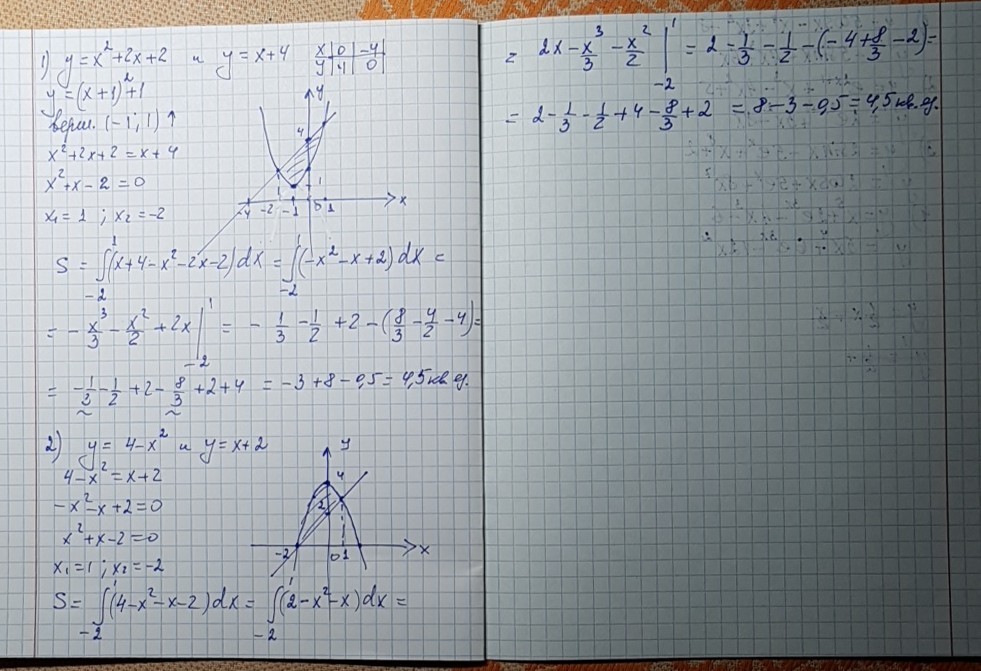 1) y = x² + 2x + 2 и y = x + 4
x | 0 | -4
y | 4 | 0
y = (x+1)² + 1
верш. (-1; 1) ↑
x² + 2x + 2 = x + 4
x² + x - 2 = 0
x₁ = 1 ; x₂ = -2
y
4
1
-4 -2 -1 0 1 x
S = ∫₋₂¹ (x + 4 - x² - 2x - 2) dx = ∫₋₂¹ (-x² - x + 2) dx =
= - x³/3 - x²/2 + 2x |₋₂¹ = - 1/3 - 1/2 + 2 - (8/3 - 4/2 - 4) =
= - 1/3 - 1/2 + 2 - 8/3 + 2 + 4 = -3 + 8 - 0,5 = 4,5 кв. ед.
2) y = 4 - x² и y = x + 2
4 - x² = x + 2
-x² - x + 2 = 0
x² + x - 2 = 0
x₁ = 1 ; x₂ = -2
y
4
2
-2 0 1 x
S = ∫₋₂¹ (4 - x² - x - 2) dx = ∫₋₂¹ (2 - x² - x) dx =
= 2x - x³/3 - x²/2 |₋₂¹ = 2 - 1/3 - 1/2 - (-4 + 8/3 - 2) =
= 2 - 1/3 - 1/2 + 4 - 8/3 + 2 = 8 - 3 - 0,5 = 4,5 кв. ед.